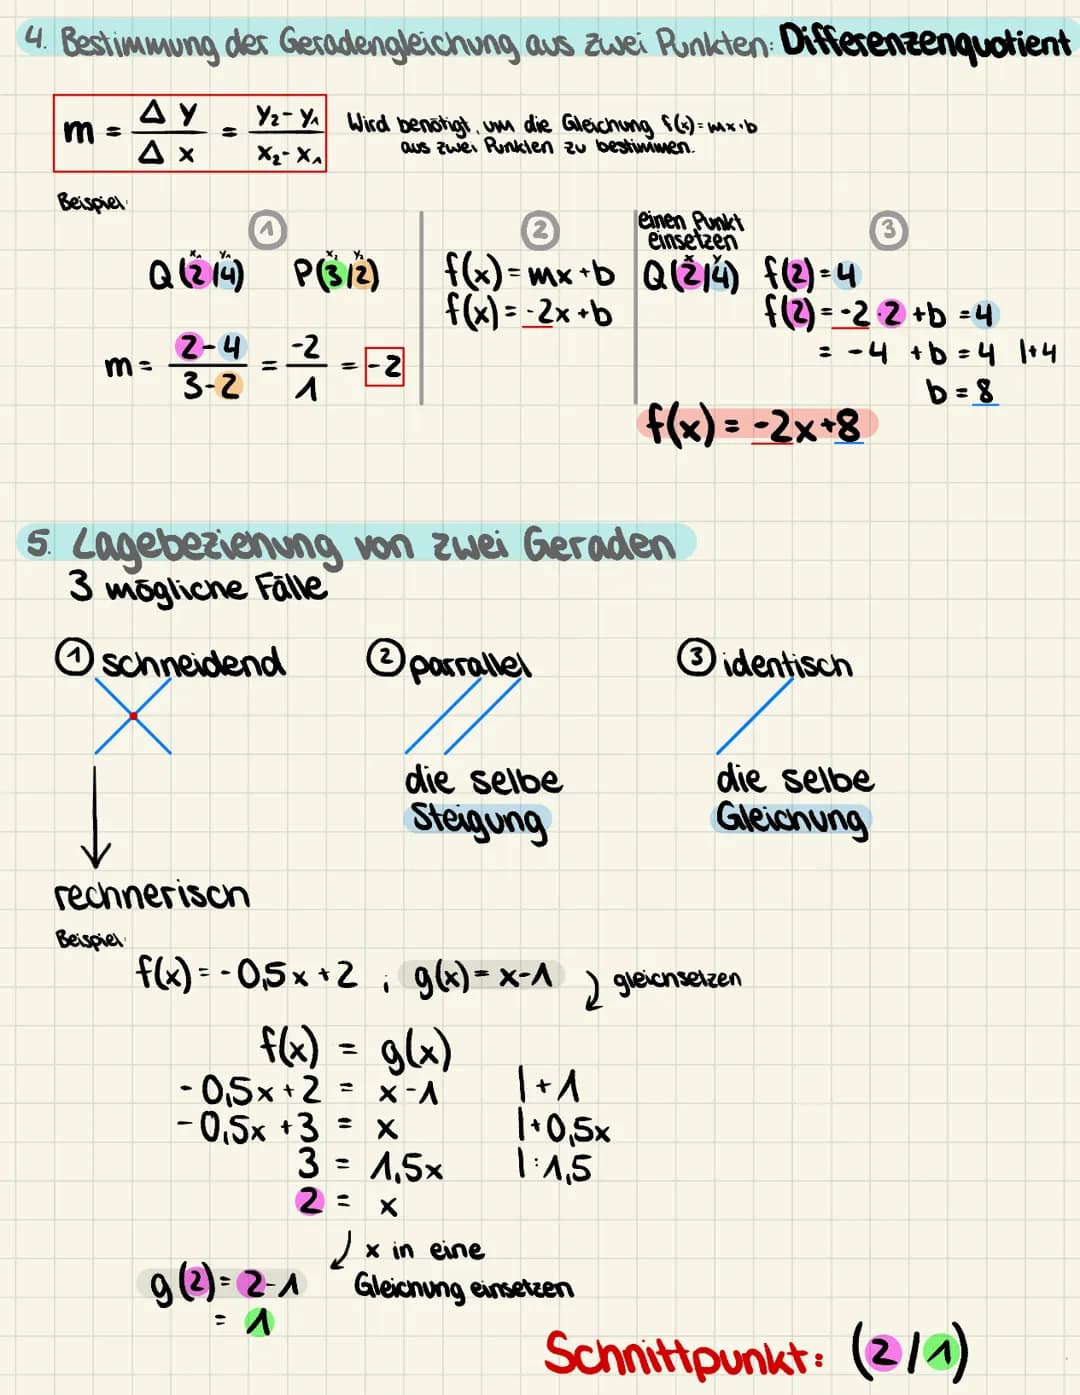 4. Bestimmung der Geradengleichung aus zwei Punkten: Differenzenquotient
m = Δy/Δx = y₂-y₁/x₂-x₁
Wird benötigt, um die Gleichung f(x)=mx+b
aus zwei Punkten zu bestimmen.
Beispiel:
①
x₁ y₁ x₂ y₂
Q(2|4) P(3|2)
m = 2-4/3-2 = -2/1 = -2
②
f(x)=mx+b
f(x)=-2x+b
einen Punkt
einsetzen
③
x y
Q(2|4) f(2)=4
f(2)=-2·2+b=4
=-4+b=4 |+4
b=8
f(x)=-2x+8
5. Lagebeziehung von zwei Geraden
3 mögliche Fälle
① schneidend ② parrallel ③ identisch
die selbe
Steigung
die selbe
Gleichung
rechnerisch
Beispiel:
f(x)=-0,5x+2 ; g(x)=x-1 gleichsetzen
f(x) = g(x)
-0,5x+2 = x-1 |+1
-0,5x+3 = x |+0,5x
3 = 1,5x |:1,5
2 = x
x in eine
Gleichung einsetzen
g(2)=2-1
= 1
Schnittpunkt: (2/1)